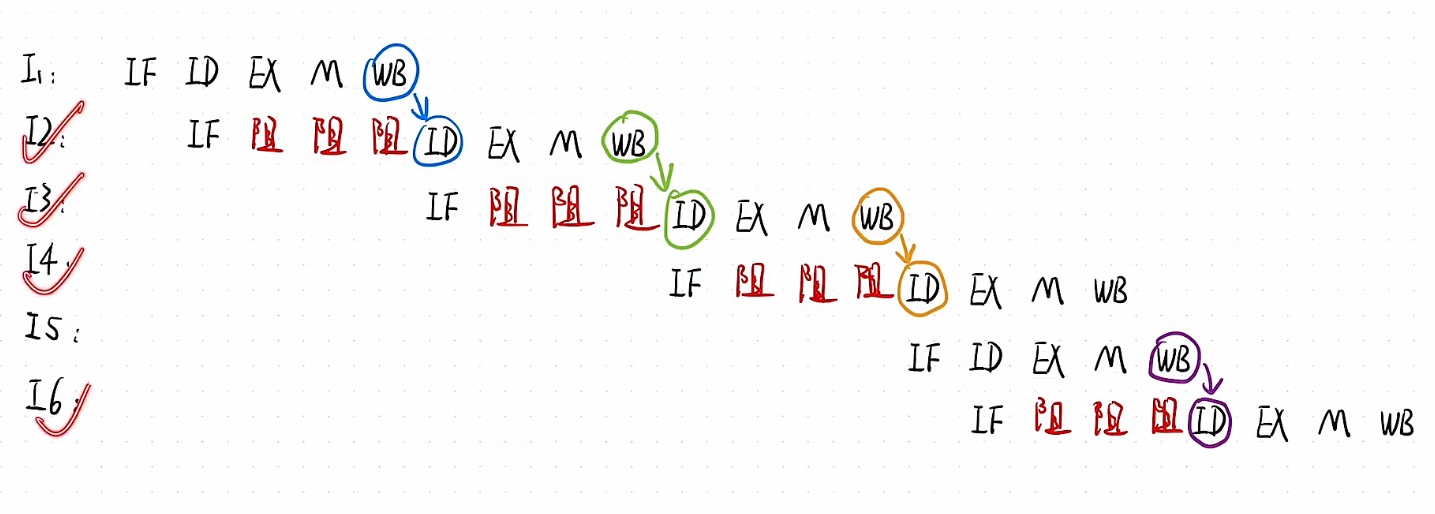 I1: IF ID EX M WB
I2: IF 阻 阻 阻 ID EX M WB
I3: IF 阻 阻 阻 ID EX M WB
I4: IF 阻 阻 阻 ID EX M WB
I5: IF ID EX M WB
I6: IF 阻 阻 阻 ID EX M WB